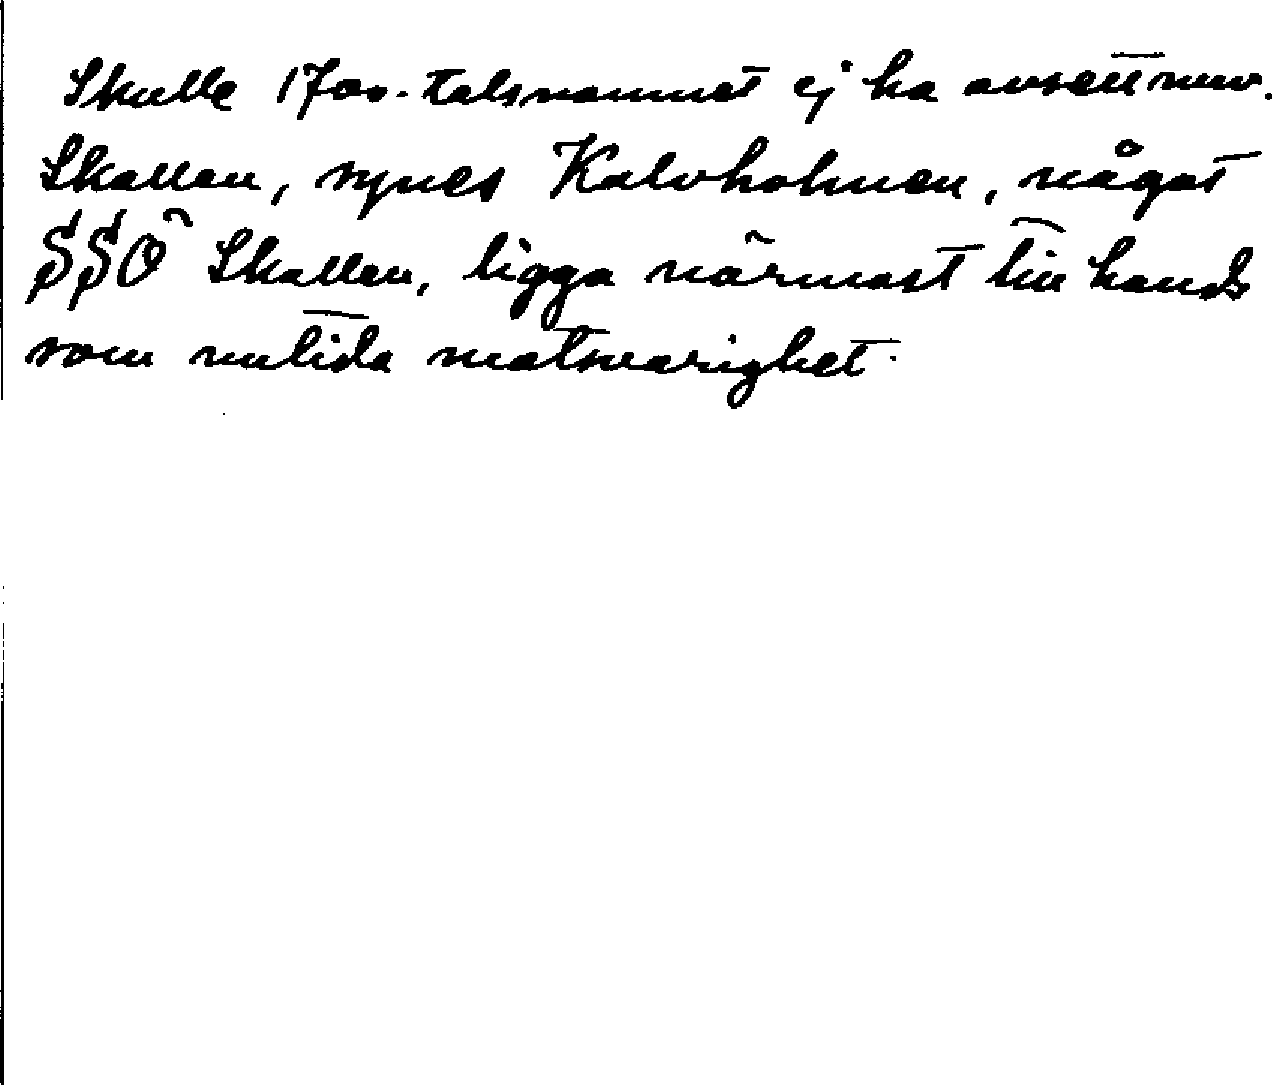 Skulle 1700-talsnamnet ej ha avsett nuv.
Skallen, synes Kalvholmen, något
SSÖ Skallen, ligga närmast till hands
som nutida motsvarighet.